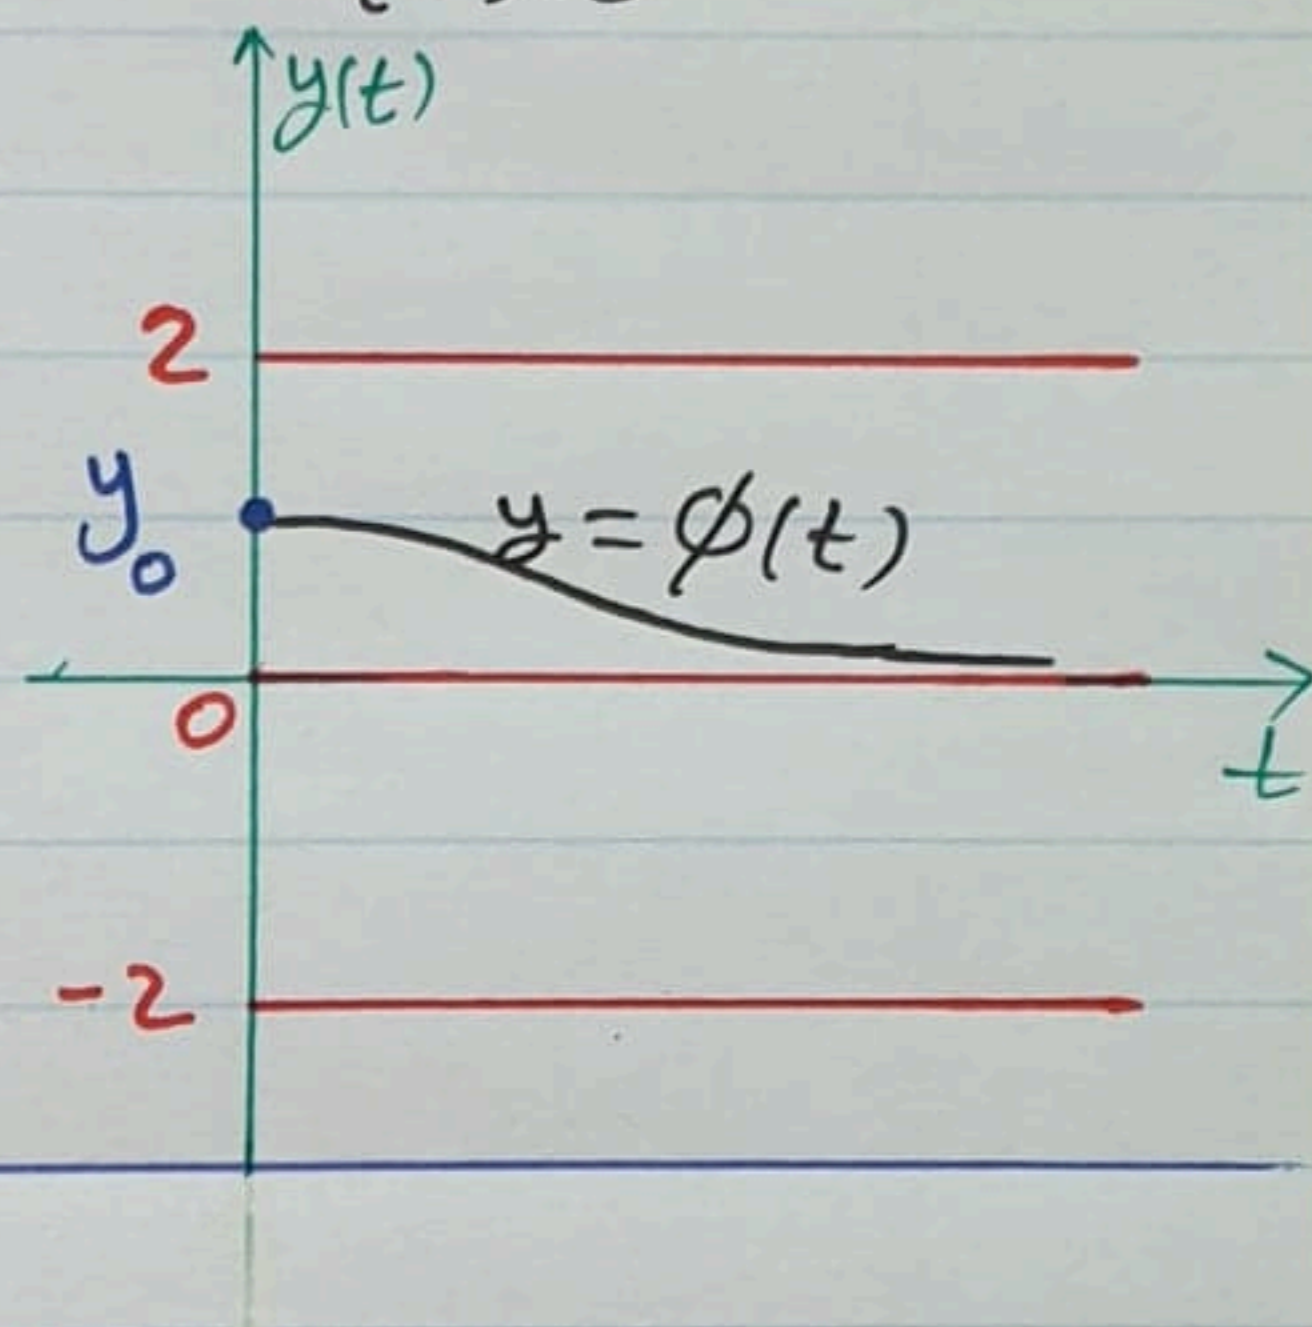 y(t)
2
y₀
y = ϕ(t)
0
t
-2